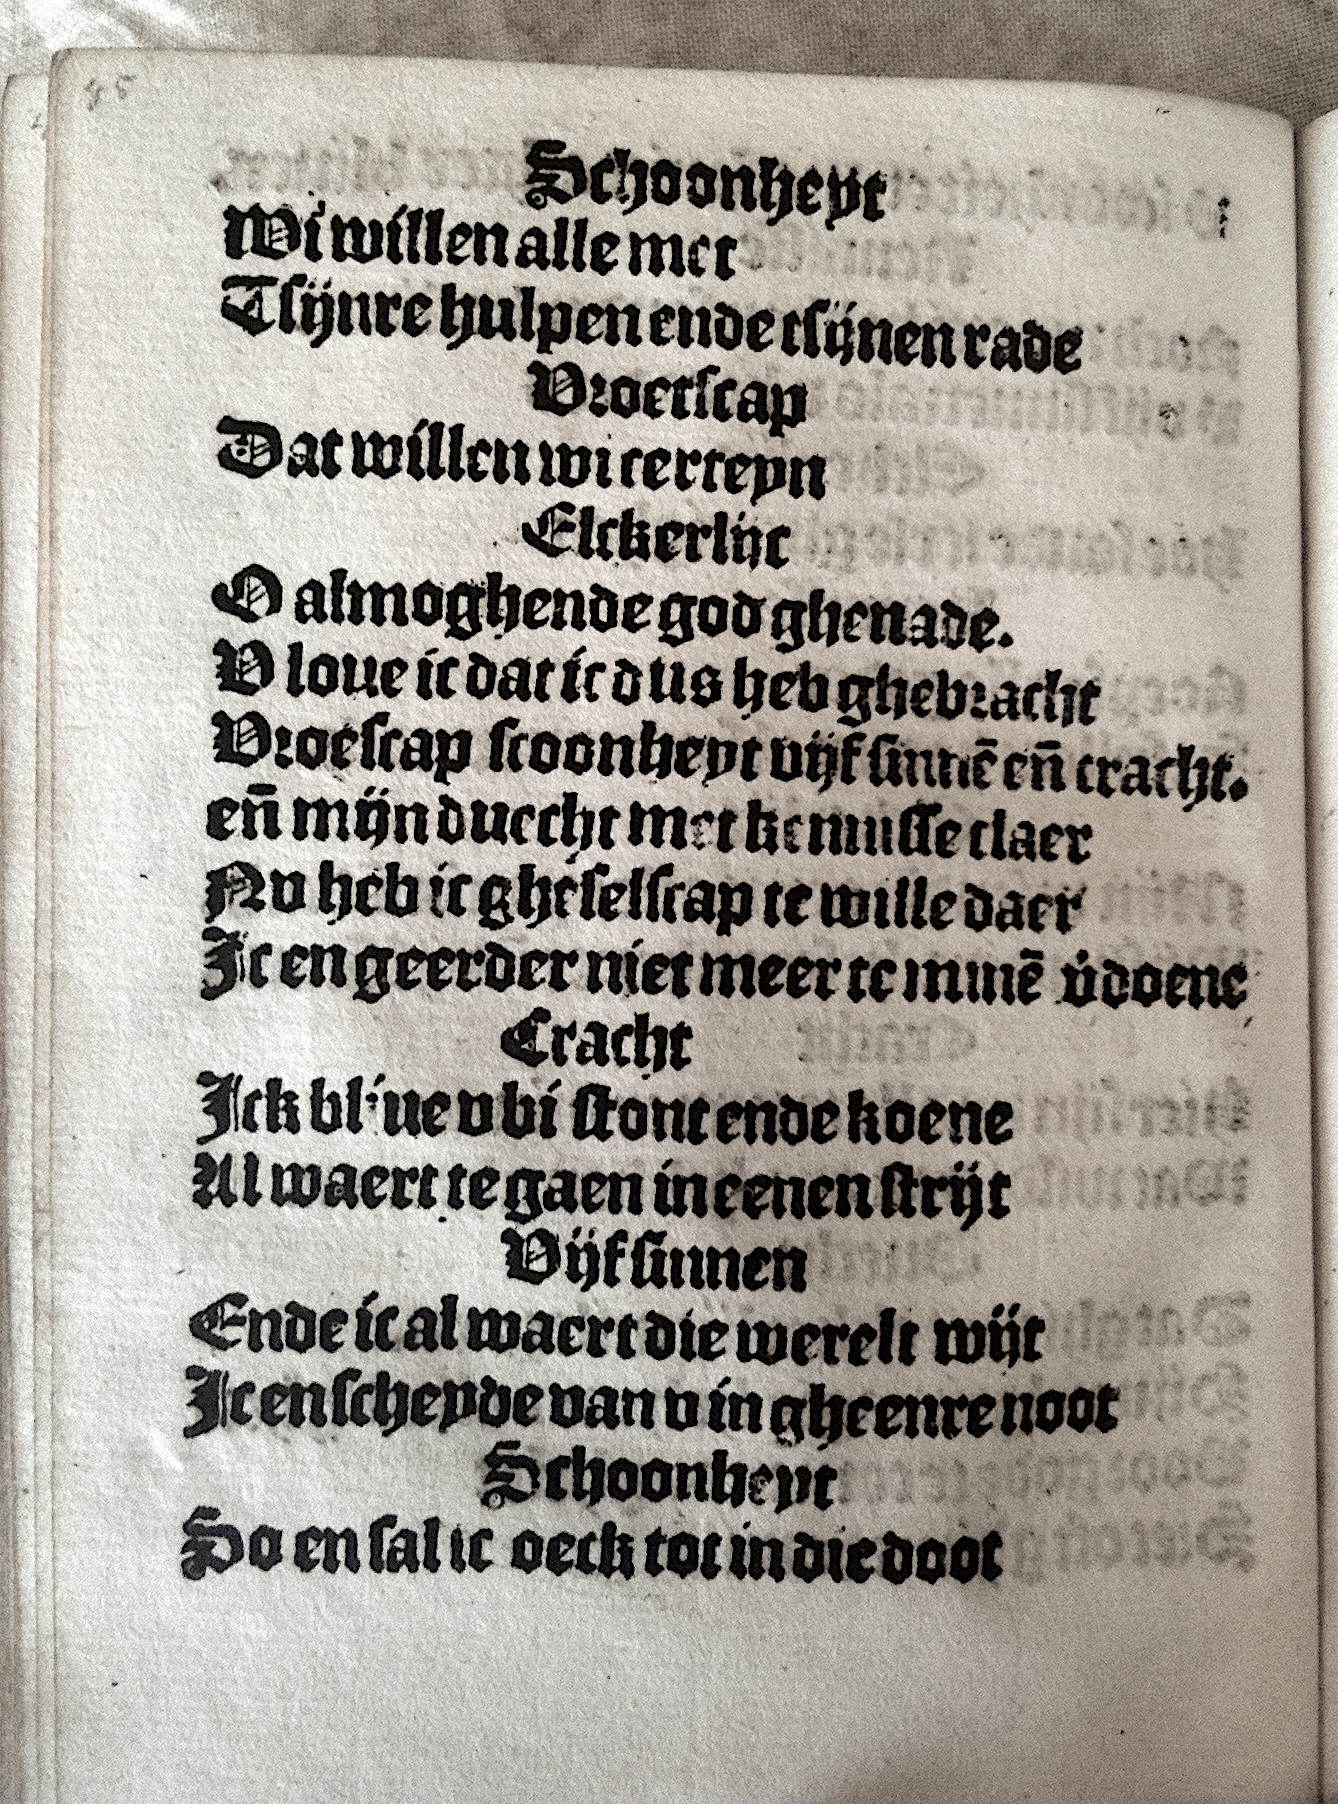 85
Schoonheyt
Wi willen alle met
Tsijnre hulpen ende tsijnen rade
Vroetscap
Dat willen wi certeyn
Elckerlijc
O almoghende god ghenade.
V loue ic dat ic dus heb ghebracht
Vroescap scoonheyt vijf sinnē en̄ cracht.
en̄ mijn duecht met kennisse claer
Nv heb ic gheselscap te wille daer
Ic en geerder niet meer te minē v̓doene
Cracht
Ick bliue v bi stont ende koene
Al waert te gaen in eenen strijt
Vijf sinnen
Ende ic al waert die werelt wijt
Ic en scheyde van v in gheenre noot
Schoonheyt
So en sal ic oeck tot in die doot